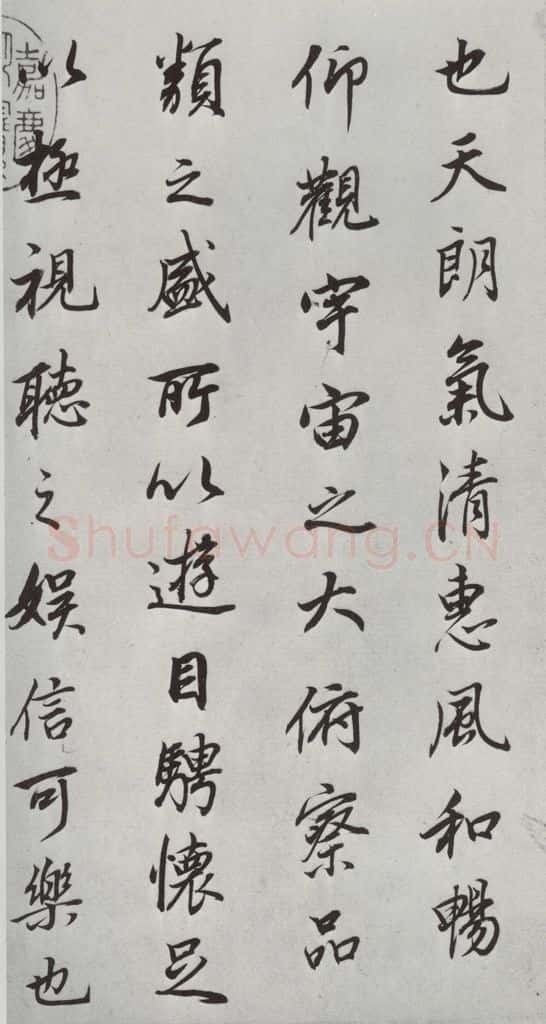 也天朗氣清惠風和暢
仰觀宇宙之大俯察品
類之盛所以遊目騁懷足
以極視聽之娛信可樂也
嘉慶
Shufawang.CN